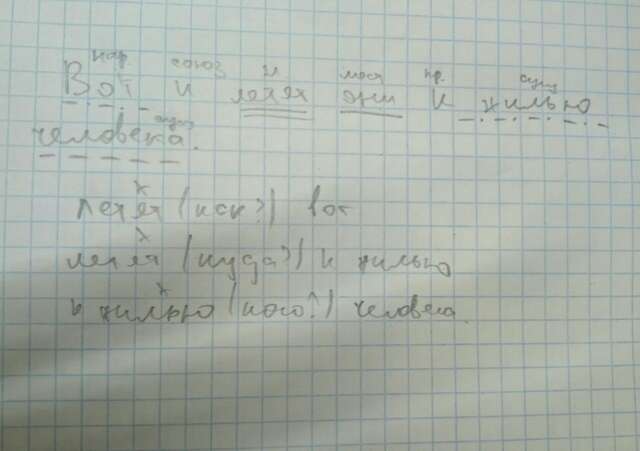 нар. союз мест пр. сущ
Вот и летят они к жилью
сущ
человека.
х
летят (как?) вот
х
летят (куда?) к жилью
х
к жилью (кого?) человека.